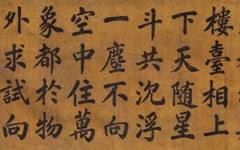 樓臺相上
下天隨星
斗共沉浮
一塵不向
空中住萬
象都於物
外求試向